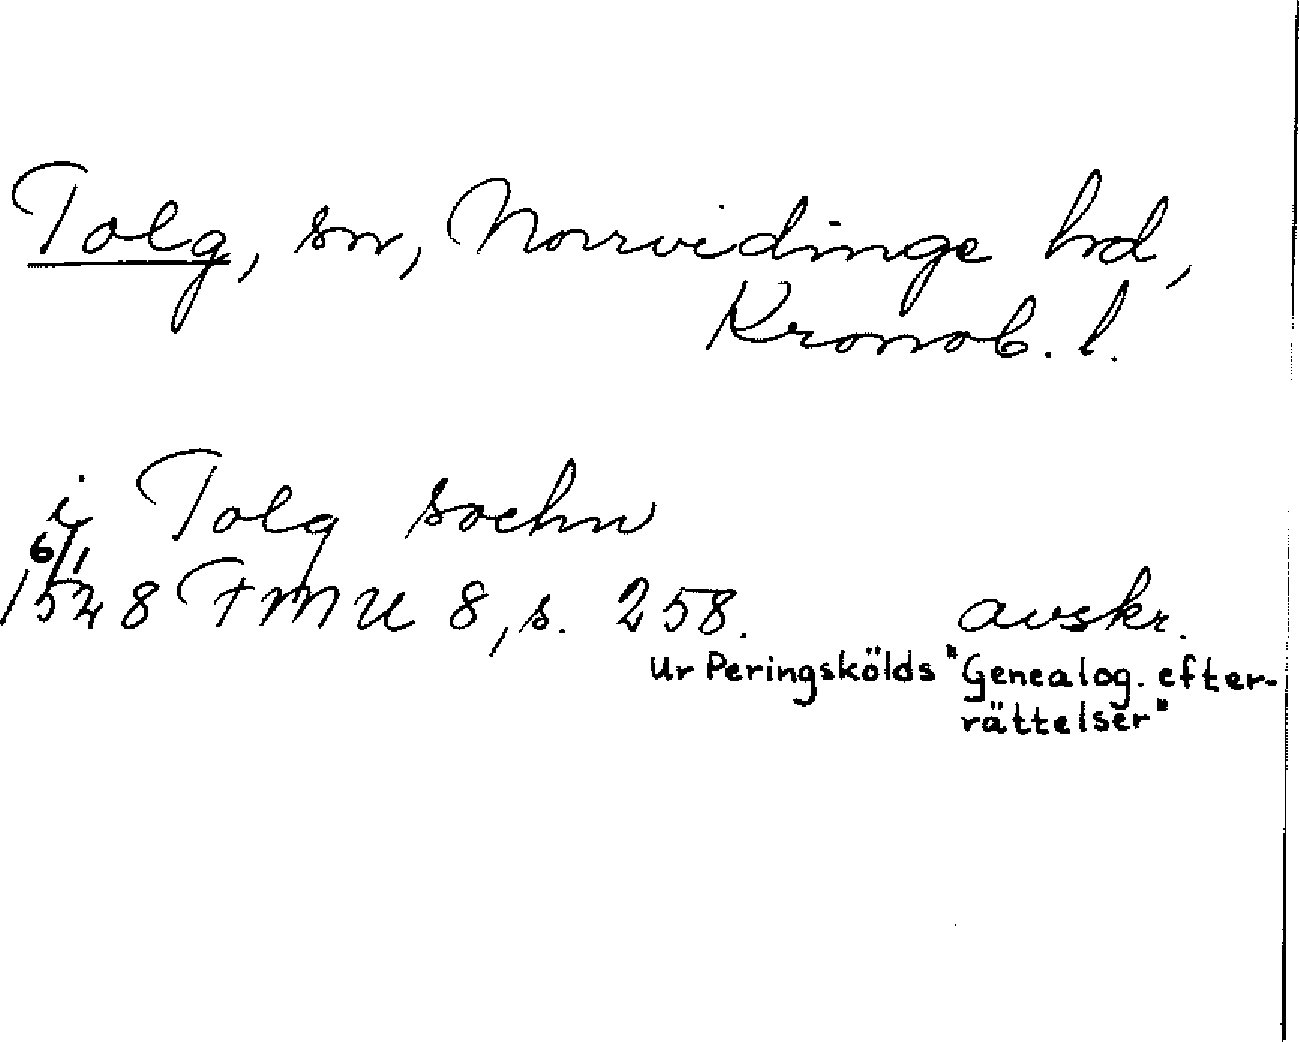 Tolg, sn, Norrvidinge hd,
Kronob. l.
i Tolg sochn
6/1
1528 FMU 8, s. 258. avskr.
Ur Peringskölds "Genealog. efter-
rättelser"